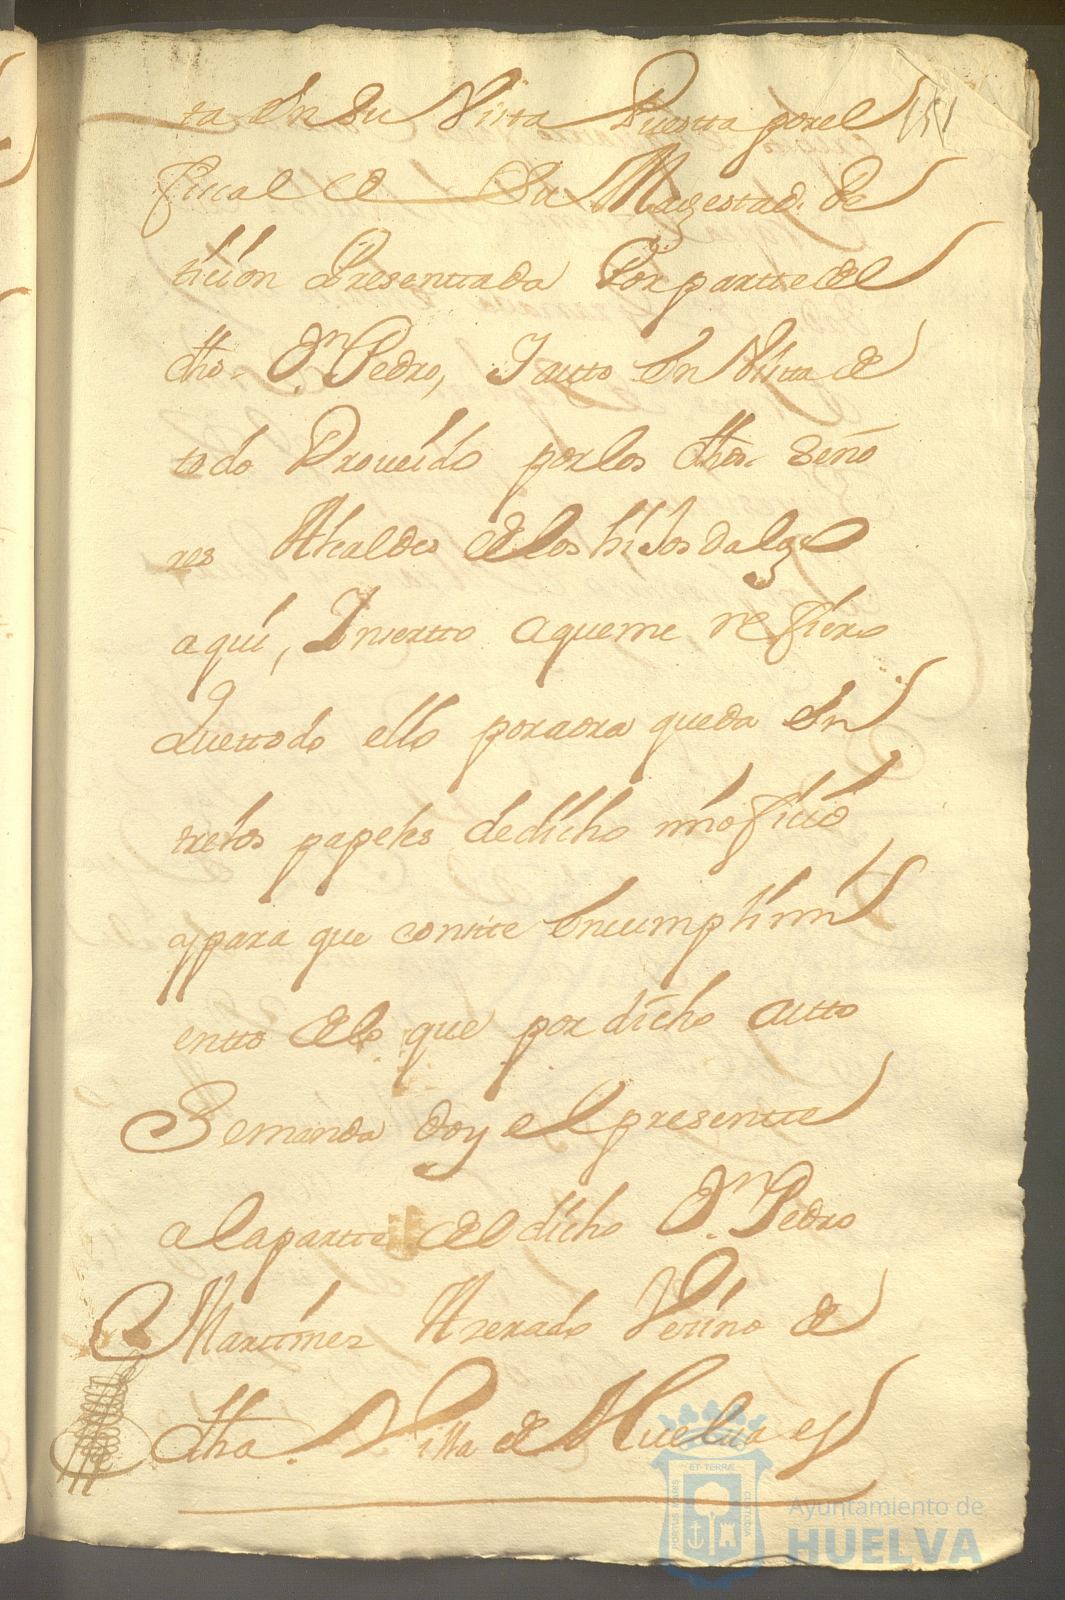 151
ta en su Vista Puesta por el
fiscal de Su Magestad. Pe
tiçion Presenttada Por partte del
dho. Dn. Pedro, Y autto en Vistta de
todo Proueído por los dhos. Seño
res Alcaldes de los híJos dalgo
aquí, Ynsertto aque me refiero
Quettodo ello por aora queda en
trelos papeles de dicho mi ofiçio
y para que constte en cumplimi
entto de lo que por dicho autto
Se manda doy el presentte
a la partte del dicho Dn. Pedro
Martínez Vezíno de
dha. Villa de Huelua e
Ayuntamiento de
HUELVA
PORTUS MARIS
ET TERRÆ
CUSTODIA